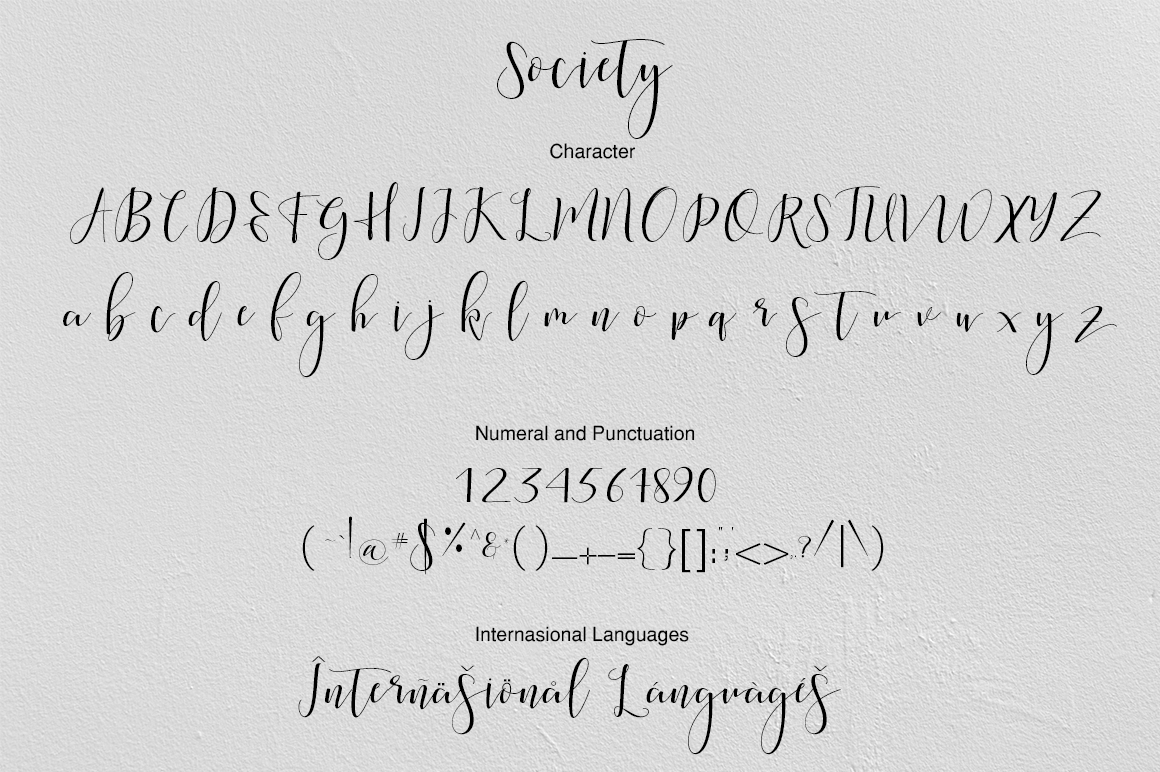 Society
Character
A B C D E F G H I J K L M N O P Q R S T U V W X Y Z
a b c d e f g h i j k l m n o p q r s t u v w x y z
Numeral and Punctuation
1234567890
( ~ ` ! @ # $ % ^ & * ( ) _ + - = { } [ ] : " ; ' < > , . ? / | \ )
Internasional Languages
Înternäšiönål Lánguàgéš